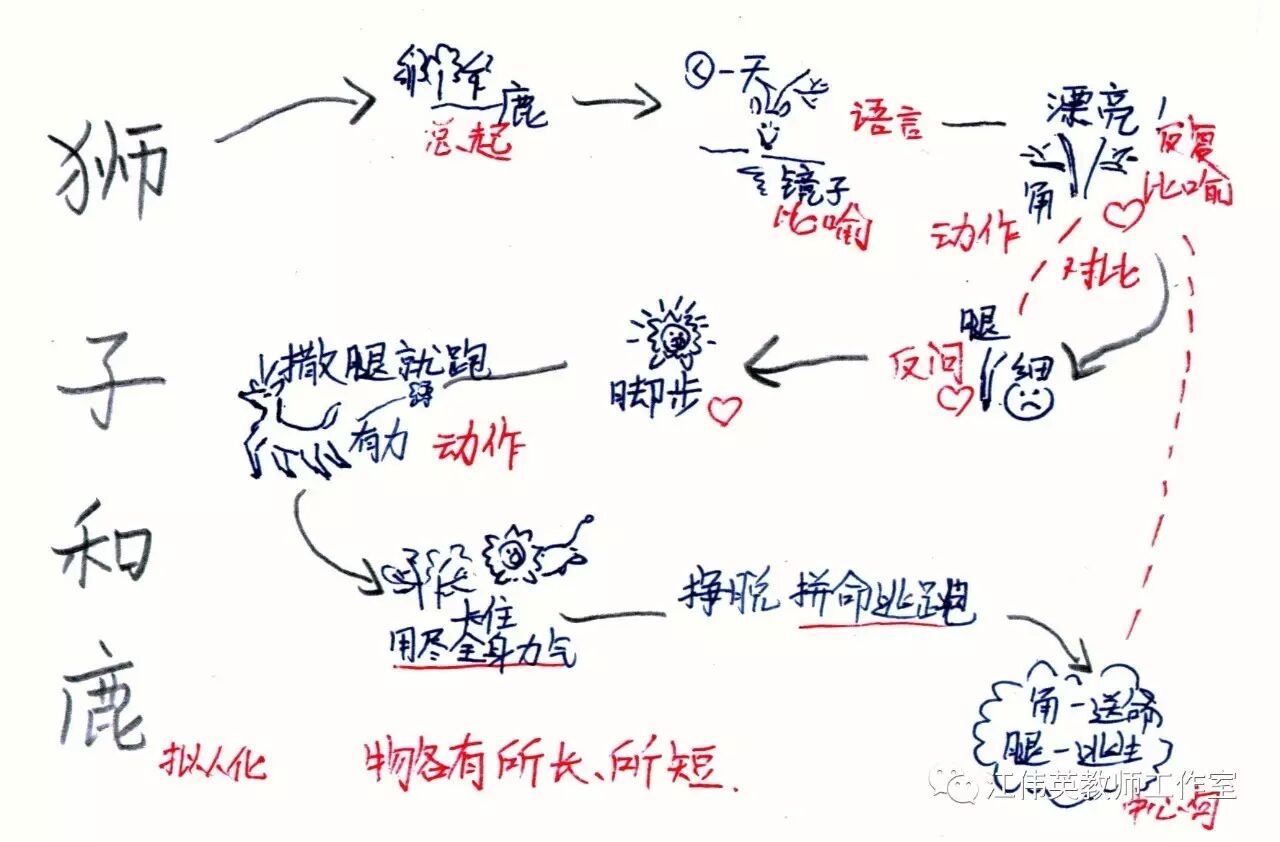 狮子和鹿
鹿
总起
一天
镜子
比喻
语言
漂亮
角
反复
比喻
动作
对比
腿
细
反问
脚步
撒腿就跑
有力
动作
卡住
用尽全身力气
挣脱 拼命逃跑
角-送命
腿-逃生
中心句
拟人化
物各有所长、所短.
江伟英教师工作室